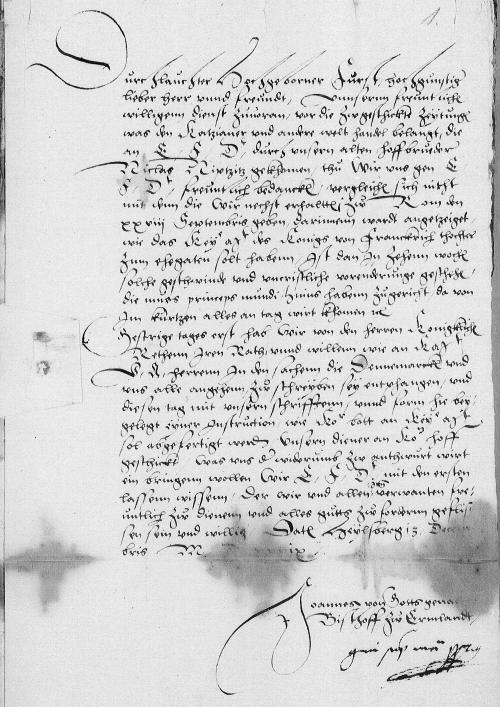 1.
Durchlauchter Hochgeborner Furst, hochgunstig
lieber herr unnd freundt, Unnsernn freuntlich
willigenn dienst zuvoran, vor die zugeschickte zeytung
was den Katzianer und andre welt handel belangt, die
an E F D durch unsern alten hoffbruder
Niclas Niptzitz gekhomen, thu Wir uns gen E
F D freuntlich bedancken, vergleichen sich nicht
mit den die Wir nechst erhalten zw Rom den
xxviii Septembris geben, darinnenn wardt angetzeiget
wie das Key Mt des Konigs von Franckrich thochter
zum ehegaten solt habenn, Ist dan In zehenn woch
solche geschwinde und uncristliche vorenderunge geschehe,
die mus princeps mundi huius habenn zugericht, da von
Im kurtzen alles an tag wirt khomen
Gestrige tages erst hab Wir von den herren Koniglich
Rethenn Iren Rath, unnd willenn wie an Kay Mt
E herrenn In den sachenn die Dennemarck und
uns alle angehenn, zw schreyben sey entphangen, und
diesen tag mit unsern schrifftenn, unnd form hie bey
gelegt eyner Instruction, wie Ko bott an Key Mt
sol abgefertigt werd, Unsern diener an Ko hoff
geschickt, Was uns widerumb zw anthwurt wirt
ein bringenn wollen Wir E F D mit den ersten
lassenn wissenn, Der wir und allen verwanten freuntlich
zw dienenn und alles gutts zw fordernn geflissen
sein und willig Dath Heylsberg 13 Decembris
M ix
Joannes von Gotts gena
Bischoff zw Ermlandt